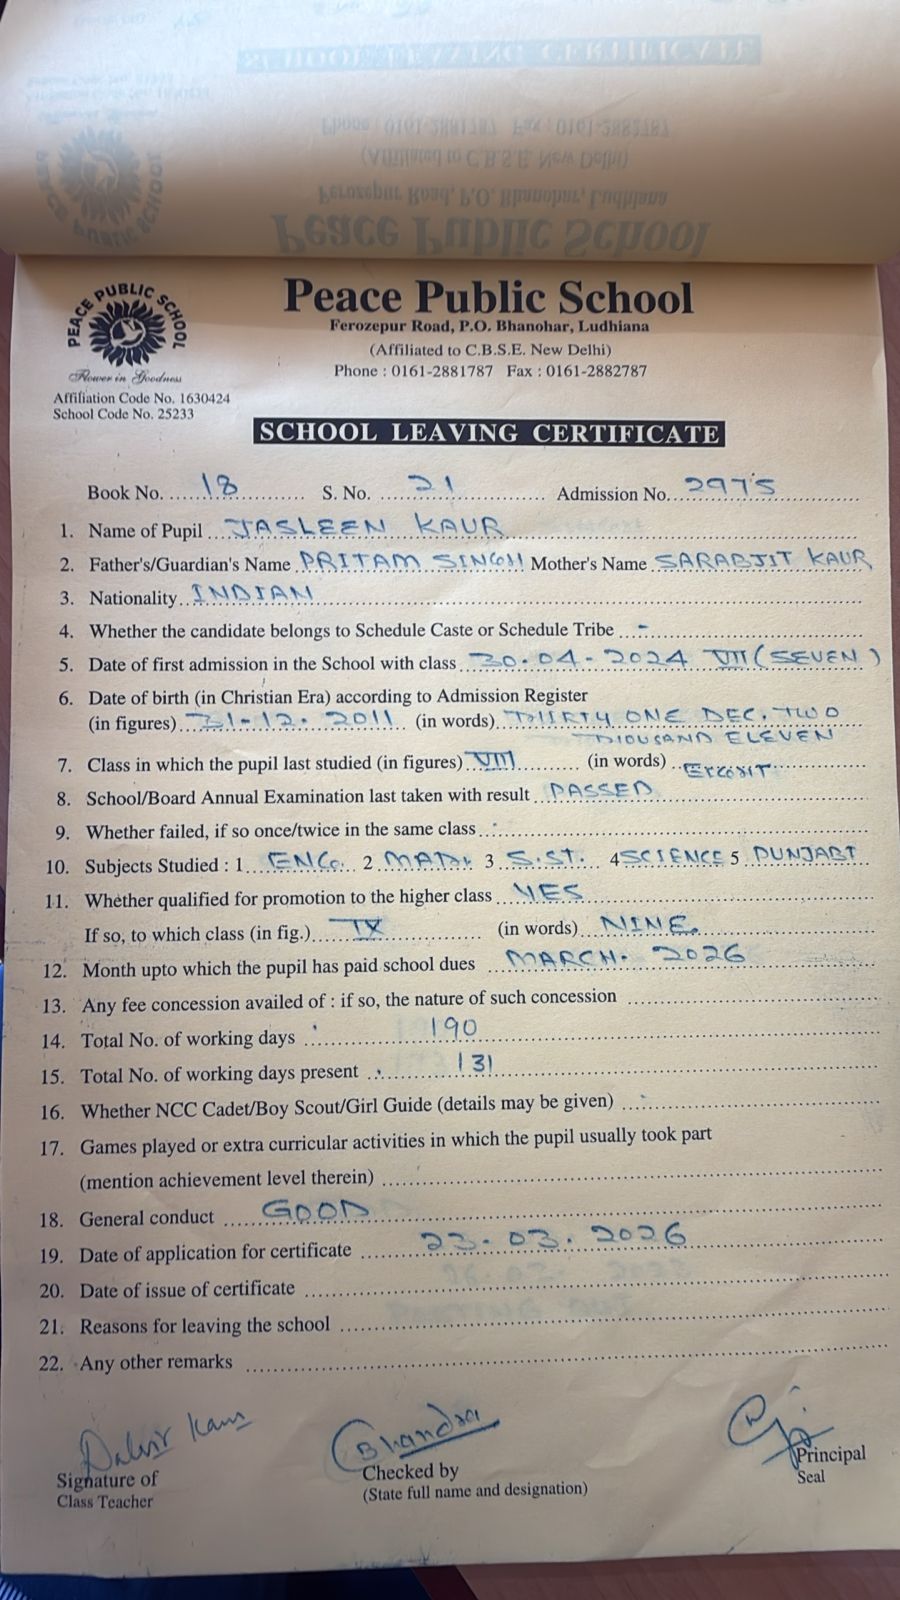 Peace Public School
Ferozepur Road, P.O. Bhanohar, Ludhiana
(Affiliated to C.B.S.E. New Delhi)
Phone : 0161-2881787 Fax : 0161-2882787
PEACE PUBLIC SCHOOL
Flower in Goodness
Affiliation Code No. 1630424
School Code No. 25233
SCHOOL LEAVING CERTIFICATE
Book No. 18 S. No. 21 Admission No. 2975
1. Name of Pupil JASLEEN KAUR
2. Father's/Guardian's Name PRITAM SINGH Mother's Name SARABJIT KAUR
3. Nationality INDIAN
4. Whether the candidate belongs to Schedule Caste or Schedule Tribe -
5. Date of first admission in the School with class 30.04-2024 VII (SEVEN)
6. Date of birth (in Christian Era) according to Admission Register
(in figures) 31-12.2011 (in words) THIRTY ONE DEC. TWO
THOUSAND ELEVEN
7. Class in which the pupil last studied (in figures) VIII (in words) EIGHT
8. School/Board Annual Examination last taken with result PASSED
9. Whether failed, if so once/twice in the same class
10. Subjects Studied : 1 ENG. 2 MATH. 3 S.ST. 4 SCIENCE 5 PUNJABI
11. Whether qualified for promotion to the higher class YES
If so, to which class (in fig.) IX (in words) NINE.
12. Month upto which the pupil has paid school dues MARCH. 2026
13. Any fee concession availed of : if so, the nature of such concession
14. Total No. of working days 190
15. Total No. of working days present 131
16. Whether NCC Cadet/Boy Scout/Girl Guide (details may be given)
17. Games played or extra curricular activities in which the pupil usually took part
(mention achievement level therein)
18. General conduct GOOD
19. Date of application for certificate 23.03.2026
20. Date of issue of certificate
21. Reasons for leaving the school
22. Any other remarks
Dalvir Kaur
Bhandari
Signature of
Class Teacher
Checked by
(State full name and designation)
Principal
Seal